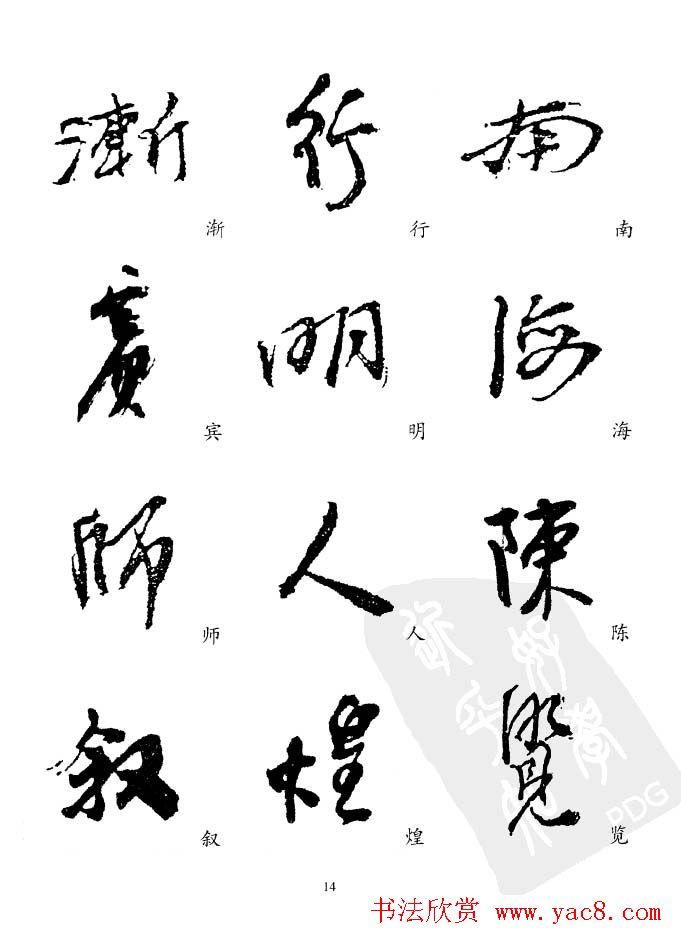 漸 行 南
渐 行 南
賓 明 海
宾 明 海
師 人 陳
师 人 陈
叙 煌 覽
叙 煌 览
PDG
14
书法欣赏 www.yac8.com